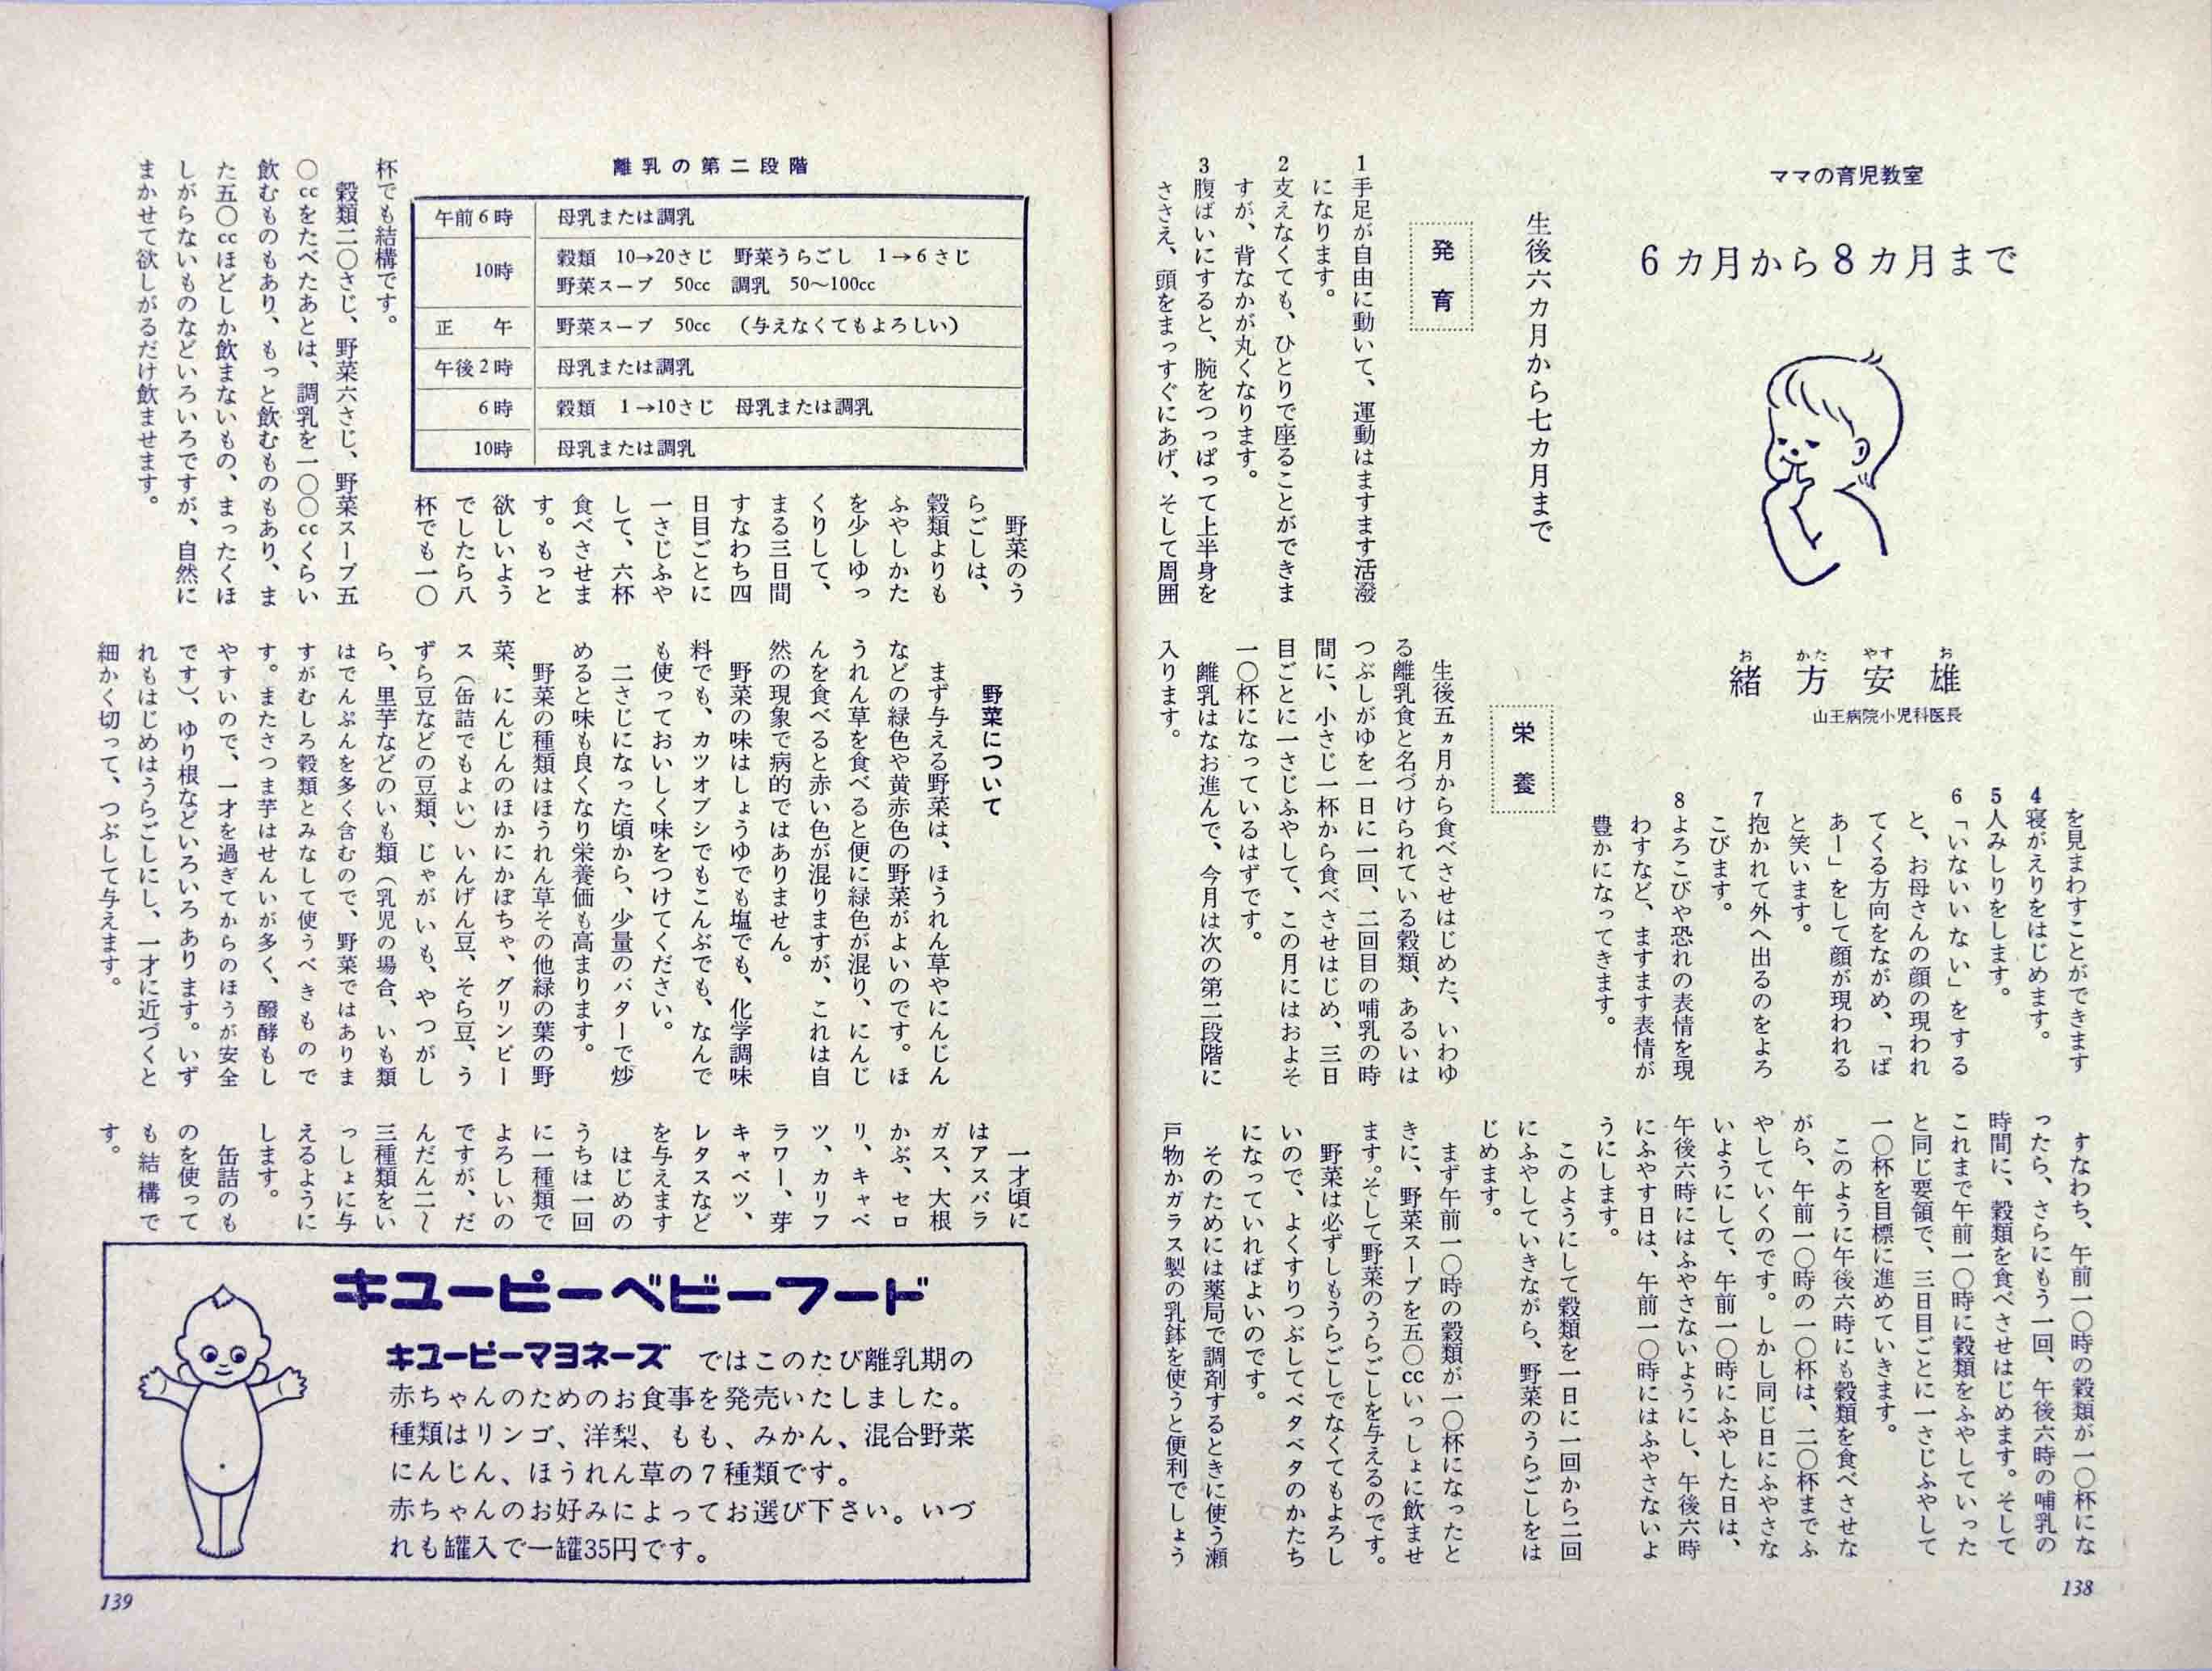 ママの育児教室
6カ月から8カ月まで
お かた やす お
緒方安雄
山王病院小児科医長
生後六カ月から七カ月まで
発育
1手足が自由に動いて、運動はますます活潑
になります。
2支えなくても、ひとりで座ることができま
すが、背なかが丸くなります。
3腹ばいにすると、腕をつっぱって上半身を
ささえ、頭をまっすぐにあげ、そして周囲
を見まわすことができます
4寝がえりをはじめます。
5人みしりをします。
6「いないいない」をする
と、お母さんの顔の現われ
てくる方向をながめ、「ば
あー」をして顔が現われる
と笑います。
7抱かれて外へ出るのをよろ
こびます。
8よろこびや恐れの表情を現
わすなど、ますます表情が
豊かになってきます。
栄養
生後五ヵ月から食べさせはじめた、いわゆ
る離乳食と名づけられている穀類、あるいは
つぶしがゆを一日に一回、二回目の哺乳の時
間に、小さじ一杯から食べさせはじめ、三日
目ごとに一さじふやして、この月にはおよそ
一〇杯になっているはずです。
離乳はなお進んで、今月は次の第二段階に
入ります。
すなわち、午前一〇時の穀類が一〇杯にな
ったら、さらにもう一回、午後六時の哺乳の
時間に、穀類を食べさせはじめます。そして
これまで午前一〇時に穀類をふやしていった
と同じ要領で、三日目ごとに一さじふやして
一〇杯を目標に進めていきます。
このように午後六時にも穀類を食べさせな
がら、午前一〇時の一〇杯は、二〇杯までふ
やしていくのです。しかし同じ日にふやさな
いようにして、午前一〇時にふやした日は、
午後六時にはふやさないようにし、午後六時
にふやす日は、午前一〇時にはふやさないよ
うにします。
このようにして穀類を一日に一回から二回
にふやしていきながら、野菜のうらごしをは
じめます。
まず午前一〇時の穀類が一〇杯になったと
きに、野菜スープを五〇ccいっしょに飲ませ
ます。そして野菜のうらごしを与えるのです。
野菜は必ずしもうらごしでなくてもよろし
いので、よくすりつぶしてベタベタのかたち
になっていればよいのです。
そのためには薬局で調剤するときに使う瀬
戸物かガラス製の乳鉢を使うと便利でしょう
138
離乳の第二段階
午前6時 母乳または調乳
10時 穀類 10→20さじ 野菜うらごし 1→6さじ
野菜スープ 50cc 調乳 50〜100cc
正午 野菜スープ 50cc (与えなくてもよろしい)
午後2時 母乳または調乳
6時 穀類 1→10さじ 母乳または調乳
10時 母乳または調乳
野菜のう
らごしは、
穀類よりも
ふやしかた
を少しゆっ
くりして、
まる三日間
すなわち四
日目ごとに
一さじふや
して、六杯
食べさせま
す。もっと
欲しいよう
でしたら八
杯でも一〇
杯でも結構です。
穀類二〇さじ、野菜六さじ、野菜スープ五
〇ccをたべたあとは、調乳を一〇〇ccくらい
飲むものもあり、もっと飲むものもあり、ま
た五〇ccほどしか飲まないもの、まったくほ
しがらないものなどいろいろですが、自然に
まかせて欲しがるだけ飲ませます。
野菜について
まず与える野菜は、ほうれん草やにんじん
などの緑色や黄赤色の野菜がよいのです。ほ
うれん草を食べると便に緑色が混り、にんじ
んを食べると赤い色が混りますが、これは自
然の現象で病的ではありません。
野菜の味はしょうゆでも塩でも、化学調味
料でも、カツオブシでもこんぶでも、なんで
も使っておいしく味をつけてください。
二さじになった頃から、少量のバターで炒
めると味も良くなり栄養価も高まります。
野菜の種類はほうれん草その他緑の葉の野
菜、にんじんのほかにかぼちゃ、グリンピー
ス(缶詰でもよい)いんげん豆、そら豆、う
ずら豆などの豆類、じゃがいも、やつがし
ら、里芋などのいも類(乳児の場合、いも類
はでんぷんを多く含むので、野菜ではありま
すがむしろ穀類とみなして使うべきもので
す。またさつま芋はせんいが多く、醱酵もし
やすいので、一才を過ぎてからのほうが安全
です)、ゆり根などいろいろあります。いず
れもはじめはうらごしにし、一才に近づくと
細かく切って、つぶして与えます。
一才頃に
はアスパラ
ガス、大根
かぶ、セロ
リ、キャベ
ツ、カリフ
ラワー、芽
キャベツ、
レタスなど
を与えます
はじめの
うちは一回
に一種類で
よろしいの
ですが、だ
んだん二〜
三種類をい
っしょに与
えるように
します。
缶詰のも
のを使って
も結構で
す。
キユーピーベビーフード
キユーピーマヨネーズ ではこのたび離乳期の
赤ちゃんのためのお食事を発売いたしました。
種類はリンゴ、洋梨、もも、みかん、混合野菜
にんじん、ほうれん草の7種類です。
赤ちゃんのお好みによってお選び下さい。いづ
れも罐入で一罐35円です。
139